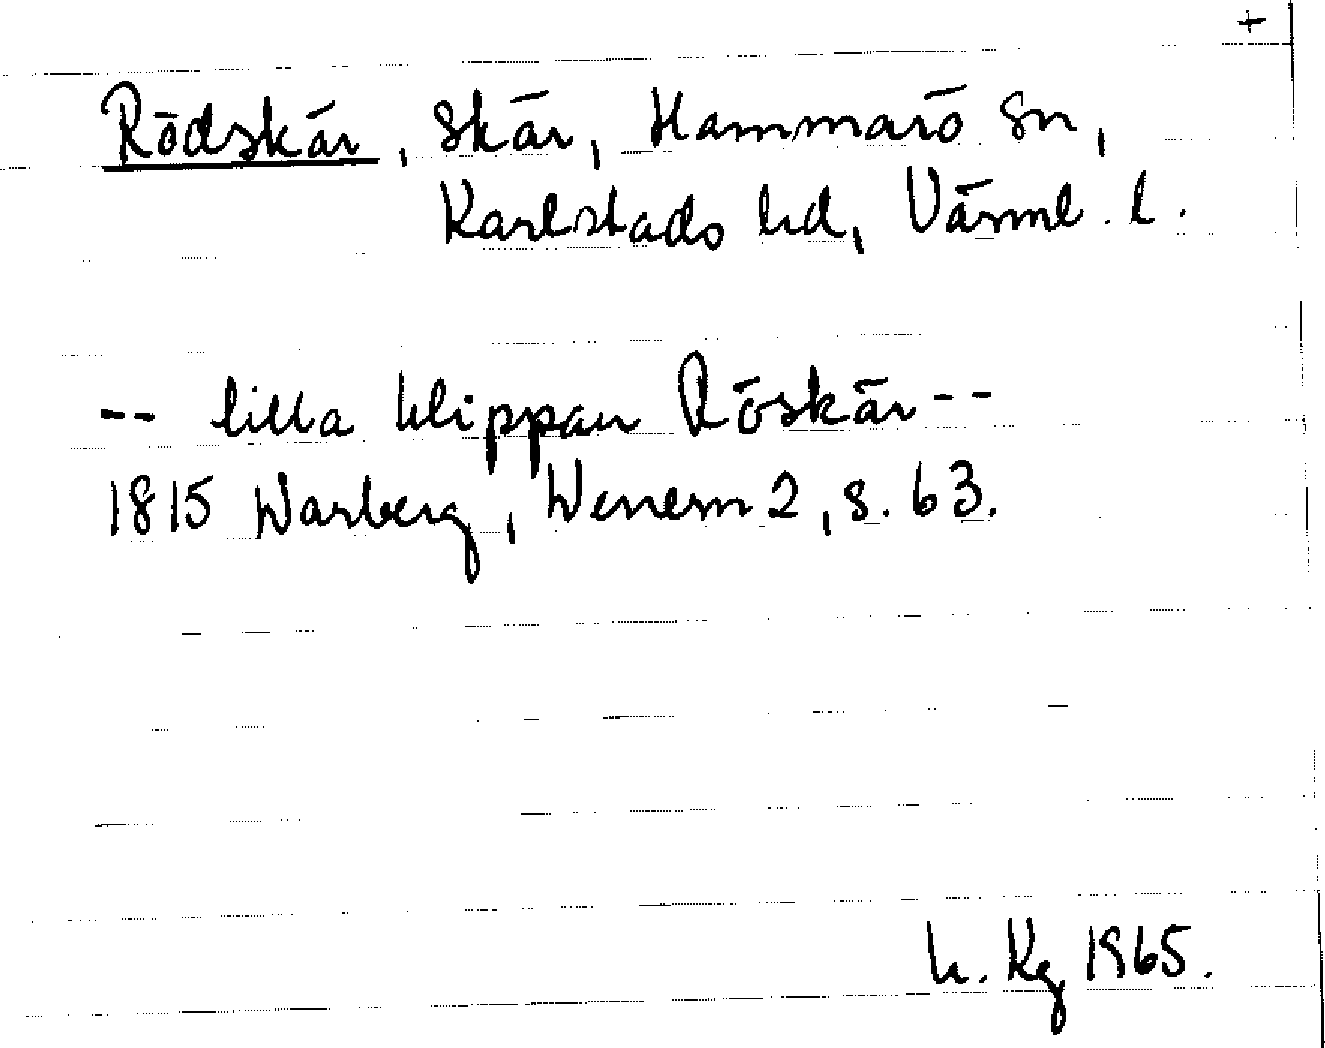 +
Rödskär, skär, Hammarö sn,
Karlstads hd, Värml. l.
-- lilla klippan Röskär --
1815 Warberg, Wenern 2, s. 63.
h. Kg 1965.